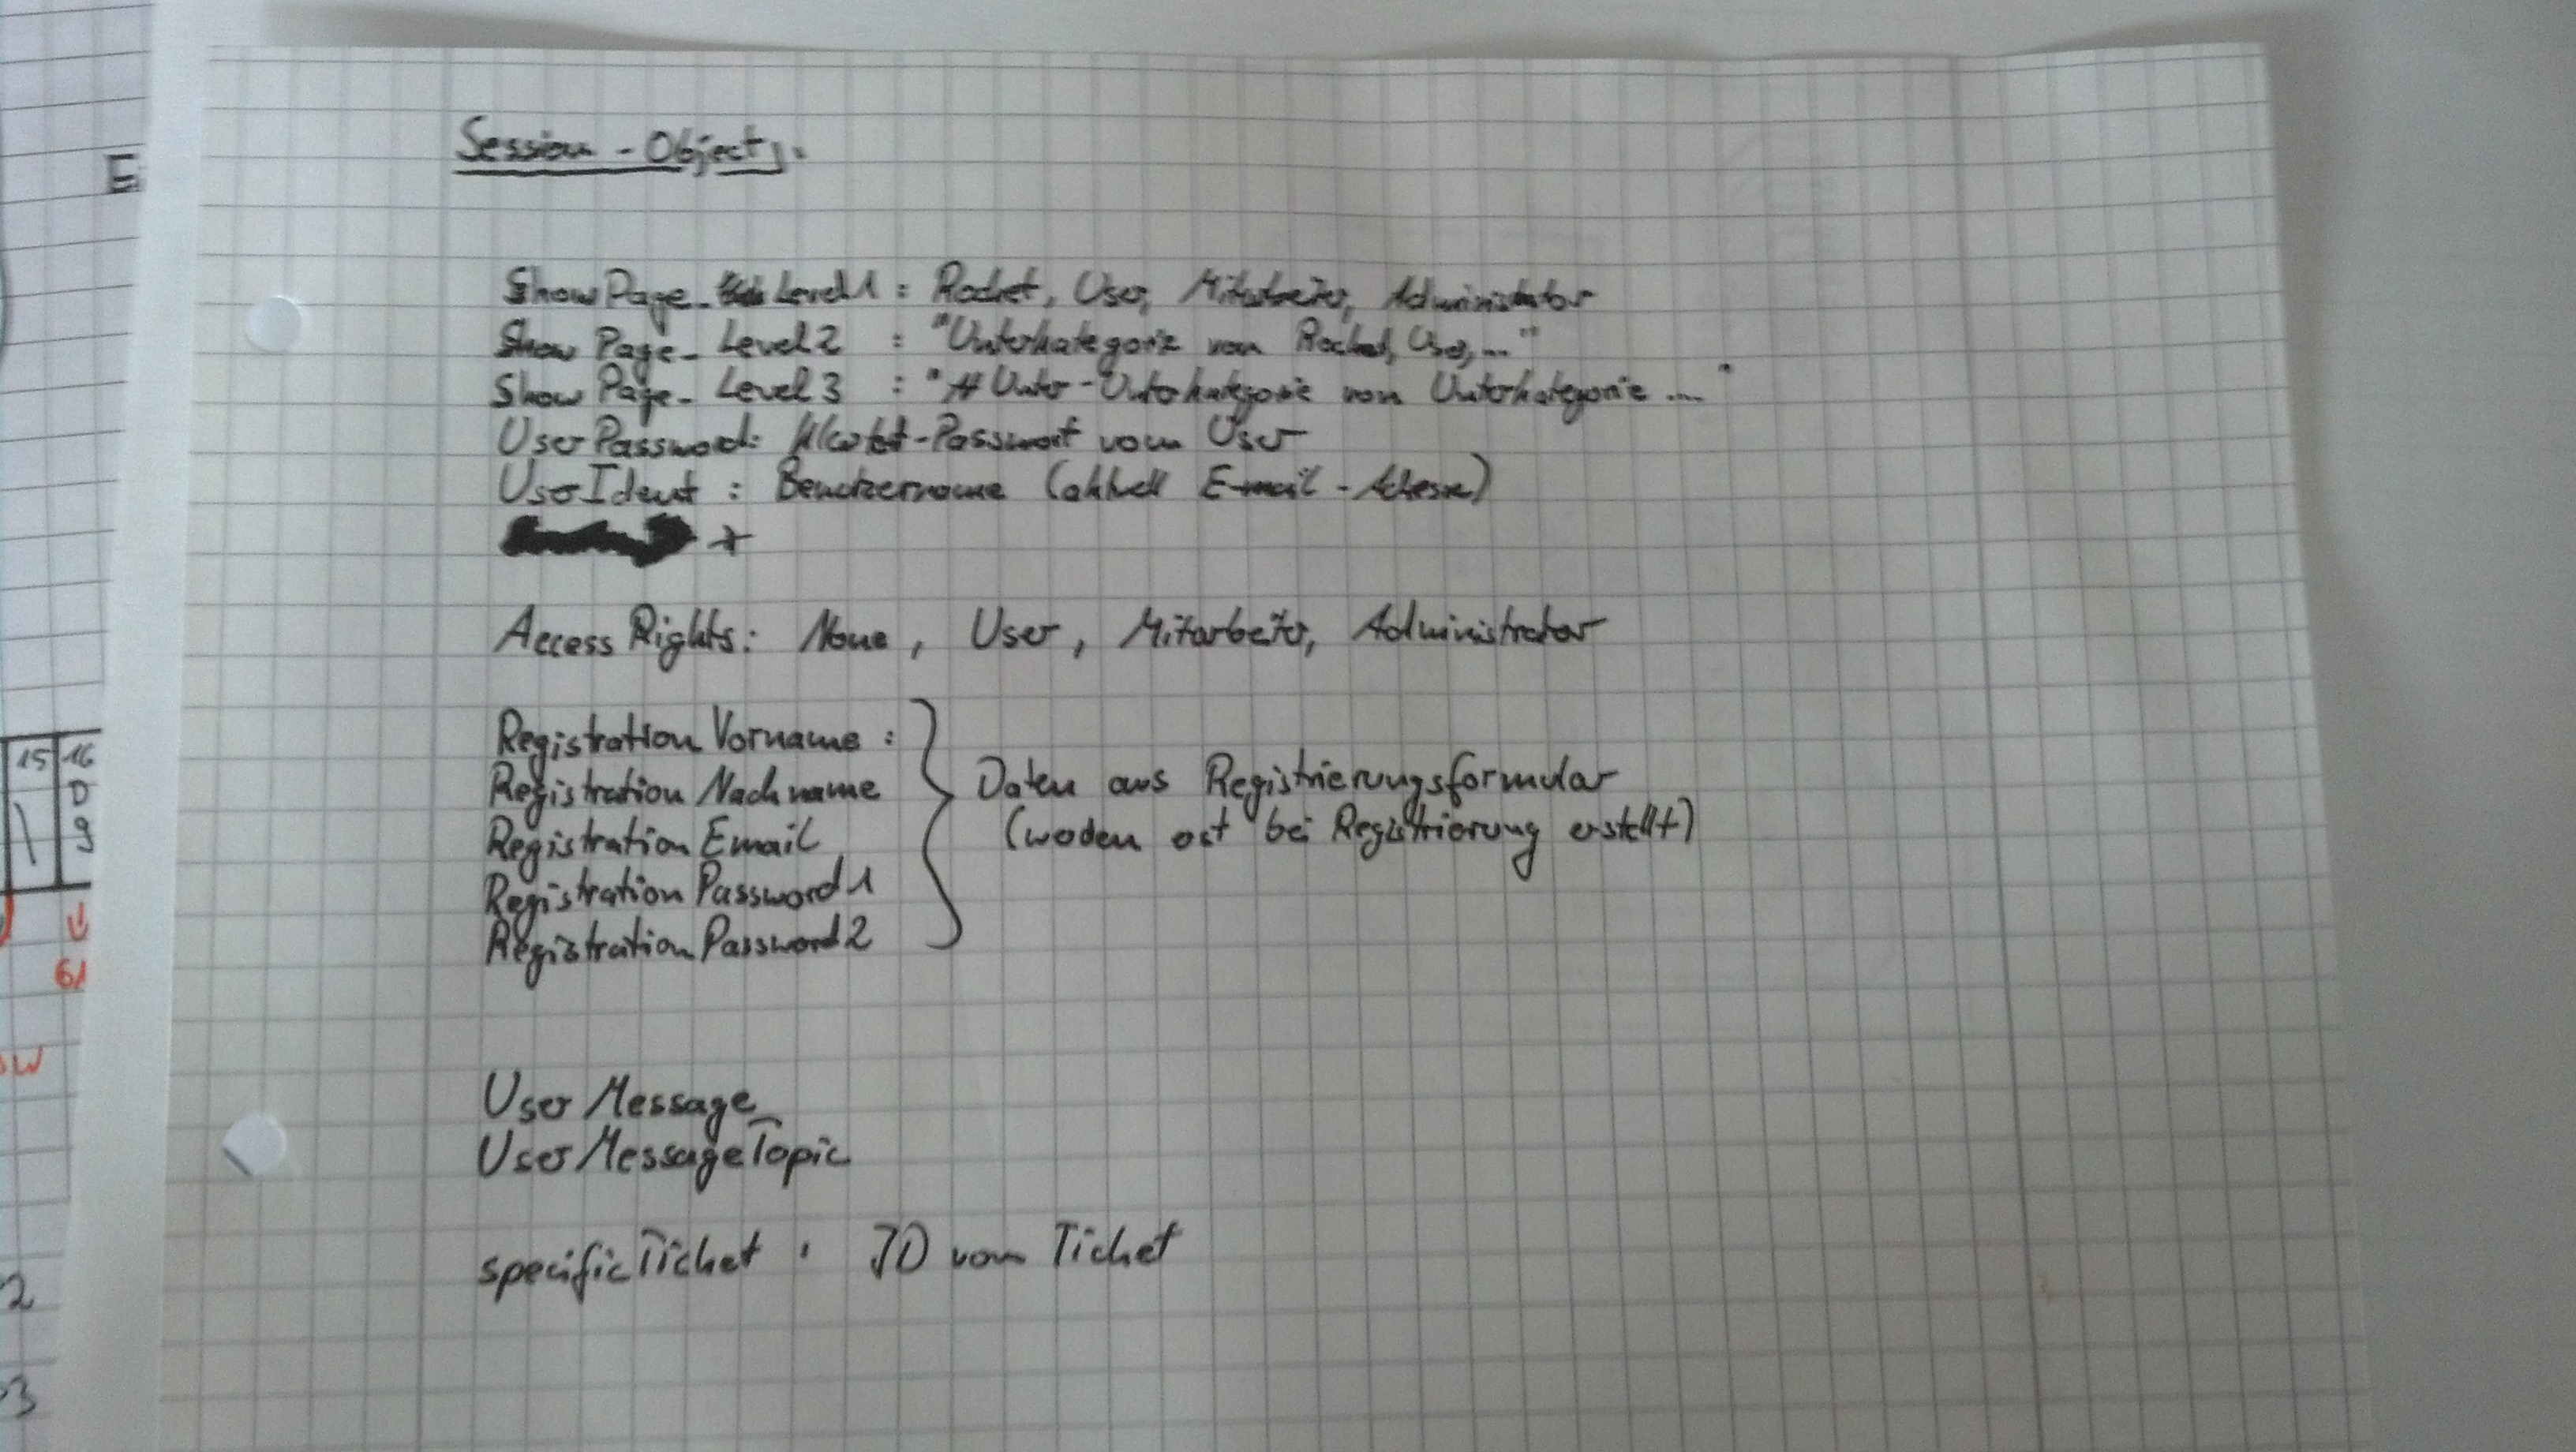 Session-Object:
ShowPage_Level1 : Rocket, User, Mitarbeiter, Administrator
Show Page_ Level 2 : "Unterkategorie von Rocket, User, ..."
Show Page_ Level 3 : "Unter-Unterkategorie von Unterkategorie ...."
User Password: Klartext-Passwort vom User
UserIdent : Benutzername (aktuell E-mail-Adresse)
Access Rights: None, User, Mitarbeiter, Administrator
Registration Vorname :
Registration Nachname
Registration Email
Registration Password1
Registration Password2
Daten aus Registrierungsformular
(werden erst bei Registrierung erstellt)
User Message
UserMessageTopic
specificTicket : ID vom Ticket
15 16
D
g
61
2
3